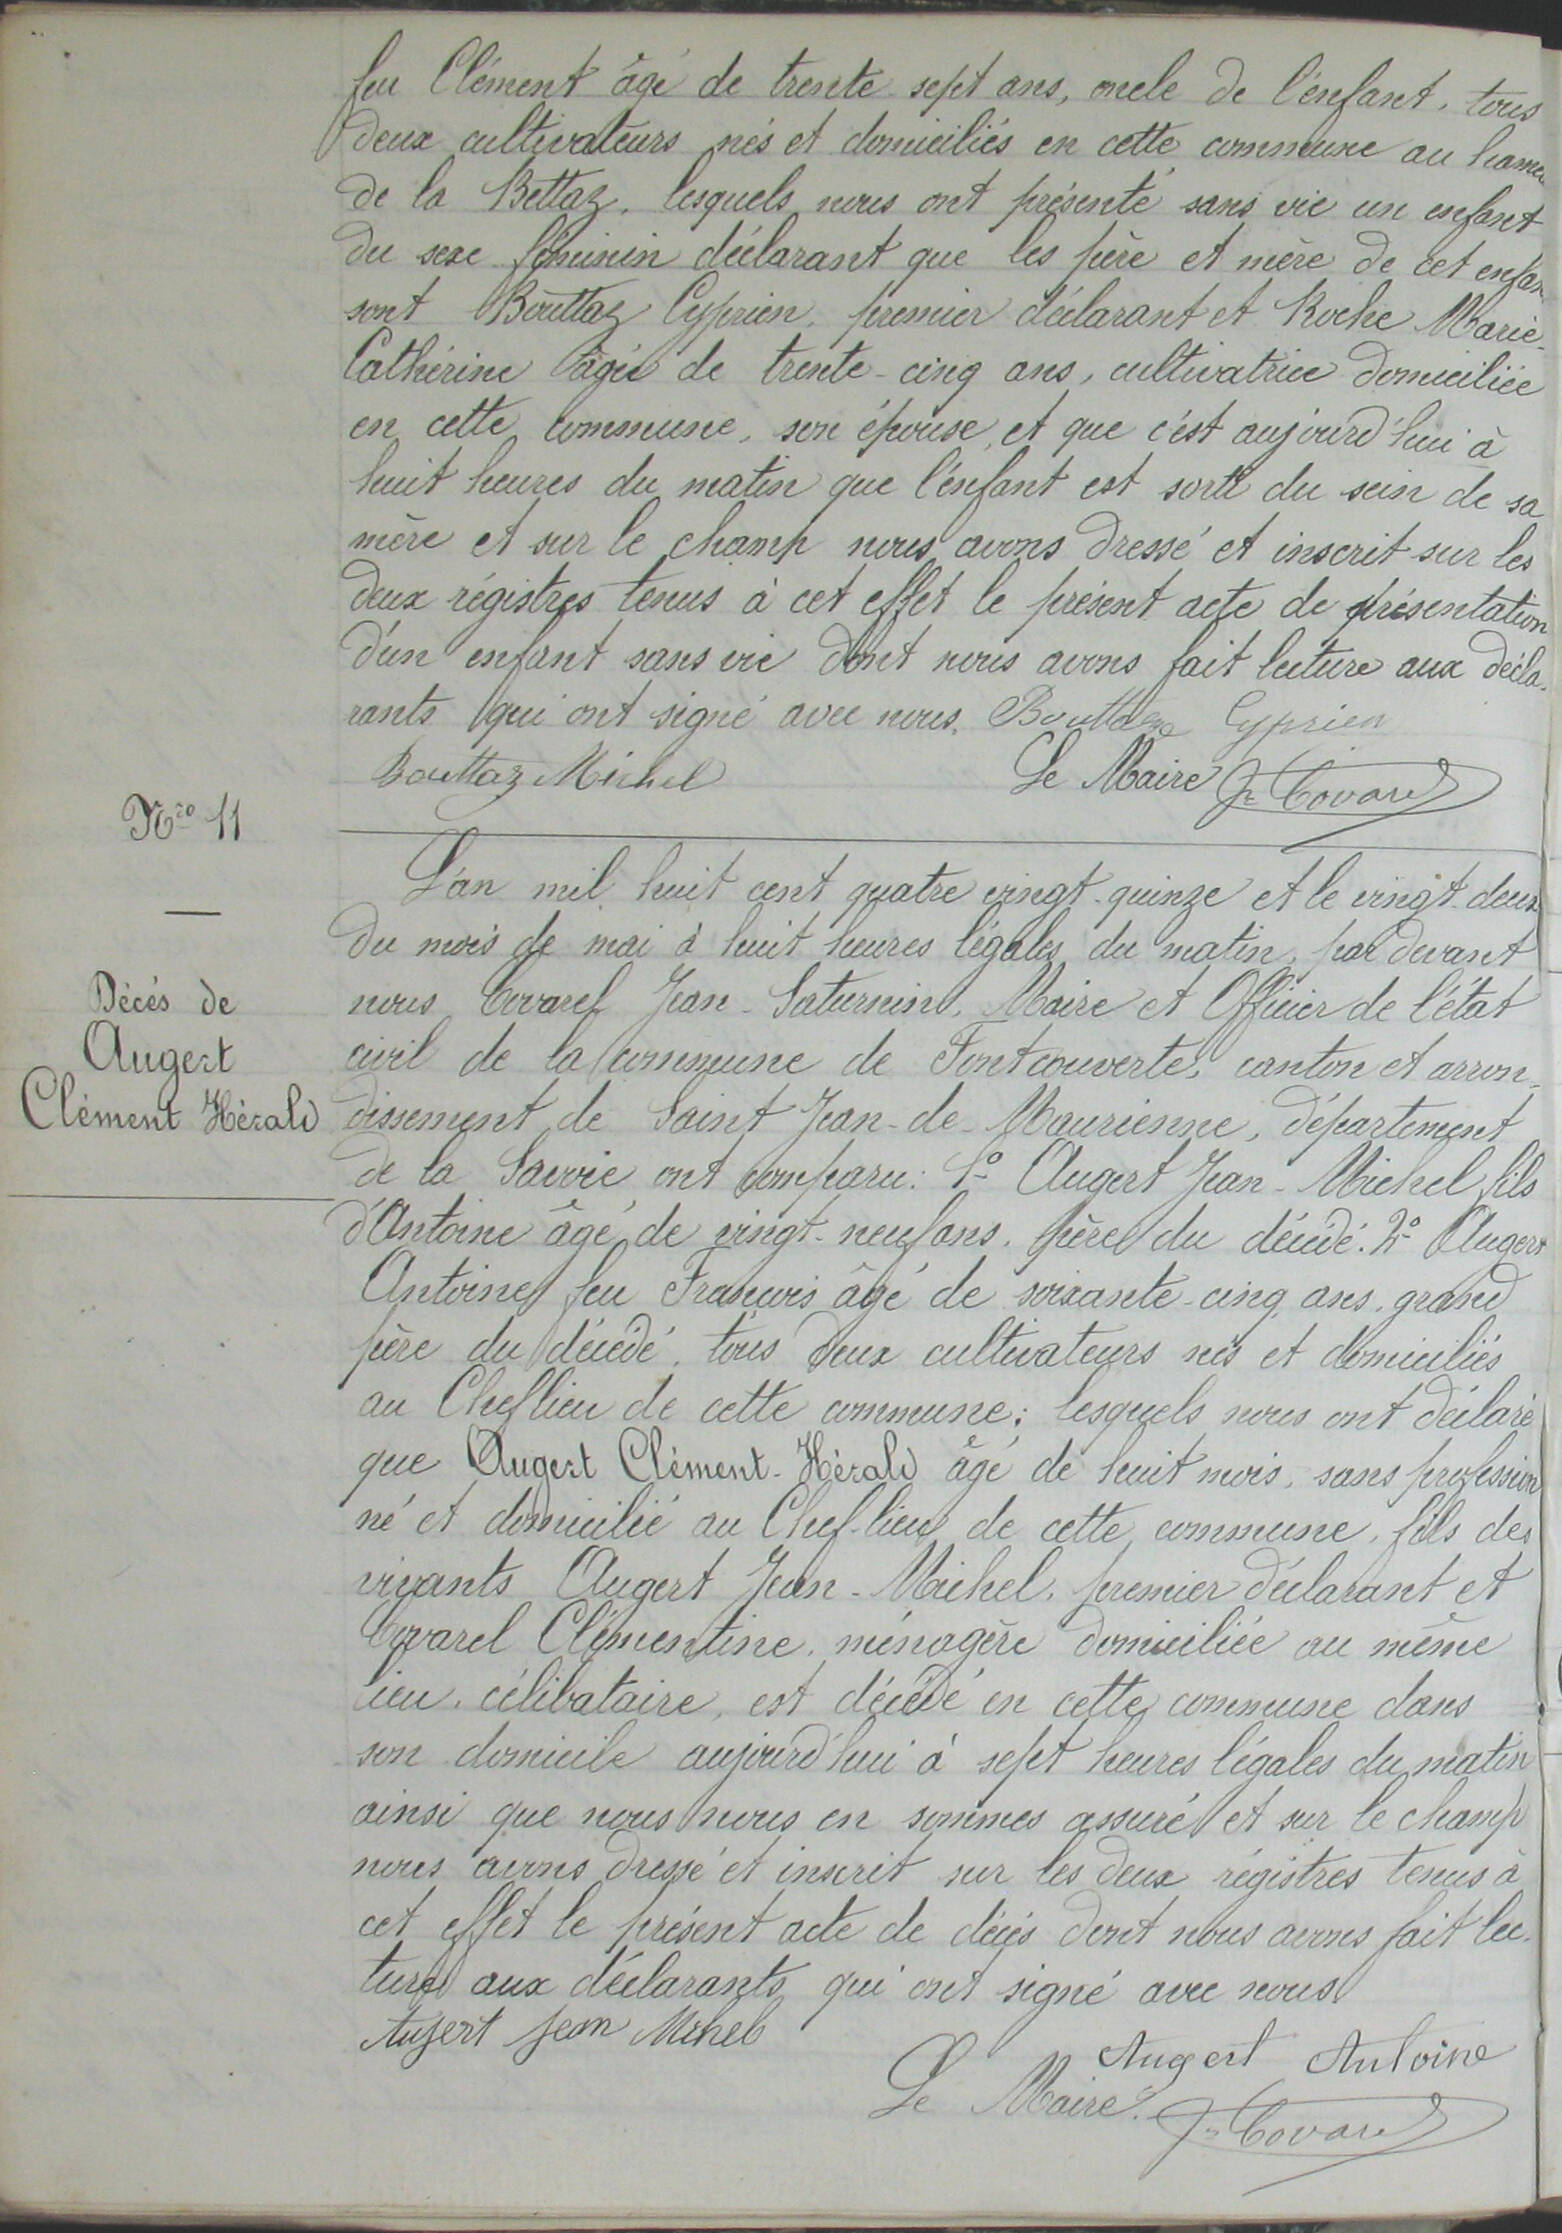 feu Clément âgé de trente sept ans, oncle de l'enfant, tous
deux cultivateurs nés et domiciliés en cette commune au hame
de la Bettaz, lesquels nous ont présenté sans vie un enfant
du sexe féminin déclarant que les père et mère de cet enfan
sont Bouttaz Cyprien, premier déclarant et Roche Marie-
Cathérine âgée de trente-cinq ans, cultivatrice domiciliée
en cette commune, son épouse, et que c'est aujourd'hui à
huit heures du matin que l'enfant est sorti du sein de sa
mère et sur le champ nous avons dressé et inscrit sur les
deux régistres tenus à cet effet le présent acte de présentation
d'un enfant sans vie dont nous avons fait lecture aux décla-
rants qui ont signé avec nous. Bouttaz Cyprien
Bouttaz Michel Le Maire Jn Covarel
Nro 11
L'an mil huit cent quatre vingt-quinze et le vingt-deux
du mois de mai à huit heures légales du matin, par devant
nous Covarel Jean-Saturnin, Maire et Officier de l'état
civil de la commune de Fontcouverte, canton et arron-
dissement de Saint Jean-de-Maurienne, département
de la Savoie ont comparu: 1° Augert Jean-Michel fils
d'Antoine âgé de vingt-neuf ans, père du décédé. 2° Augert
Antoine feu François âgé de soixante-cinq ans, grand
père du décédé, tous deux cultivateurs nés et domiciliés
au Cheflieu de cette commune; lesquels nous ont déclaré
que Augert Clément-Hérald âgé de huit mois, sans profession
né et domicilié au Chef-lieu de cette commune, fils des
vivants Augert Jean-Michel, premier déclarant et
Covarel Clémentine, ménagère domiciliée au même
lieu, célibataire, est décédé en cette commune dans
son domicile aujourd'hui à sept heures légales du matin
ainsi que nous nous en sommes assuré et sur le champ
nous avons dressé et inscrit sur les deux régistres tenus à
cet effet le présent acte de décès dont nous avons fait lec-
ture aux déclarants qui ont signé avec nous
Augert Jean Michel
Augert Antoine
Le Maire. Jn Covarel
Décés de
Augert
Clément Hérald